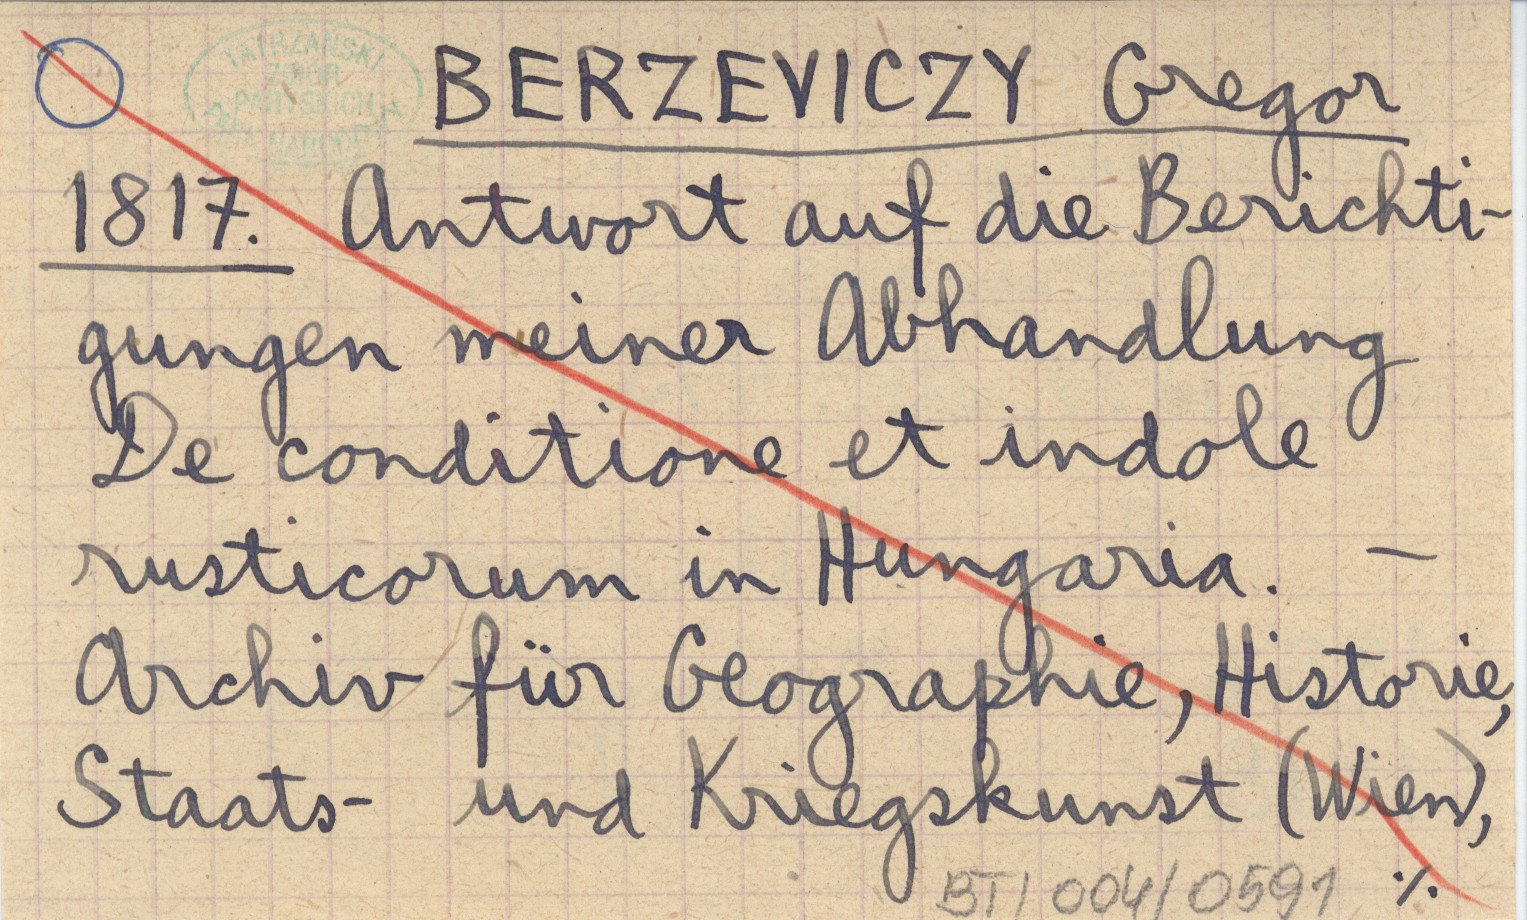 TATRZAŃSKI
BERZEVICZY Gregor
1817. Antwort auf die Berichti-
gungen meiner Abhandlung
De conditione et indole
rusticorum in Hungaria. —
Archiv für Geographie, Historie,
Staats- und Kriegskunst (Wien),
BT/004/0591 ./.